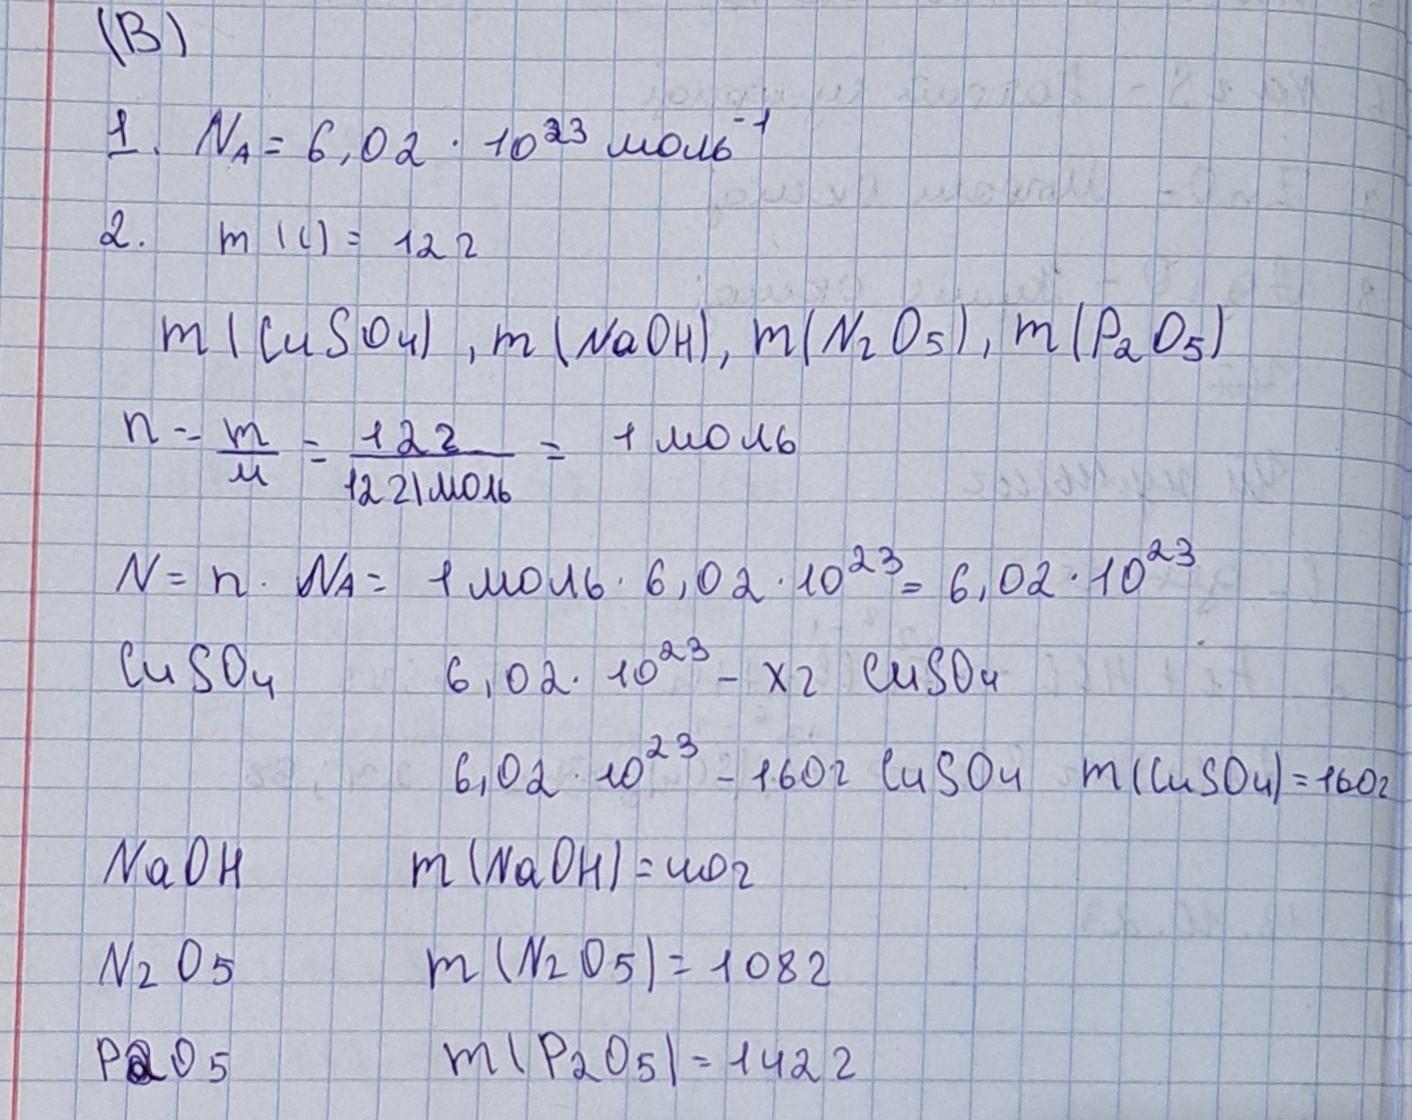 (B)
1. NA = 6,02 · 10²³ моль⁻¹
2. m (C) = 12 г
m (CuSO4), m (NaOH), m(N2O5), m(P2O5)
n = m/м = 12 г/12 г/моль = 1 моль
N = n · NA = 1 моль · 6,02 · 10²³ = 6,02 · 10²³
CuSO4 6,02 · 10²³ - x г CuSO4
6,02 · 10²³ - 160 г CuSO4 m (CuSO4) = 160 г
NaOH m (NaOH) = 40 г
N2O5 m (N2O5) = 108 г
P2O5 m (P2O5) = 142 г